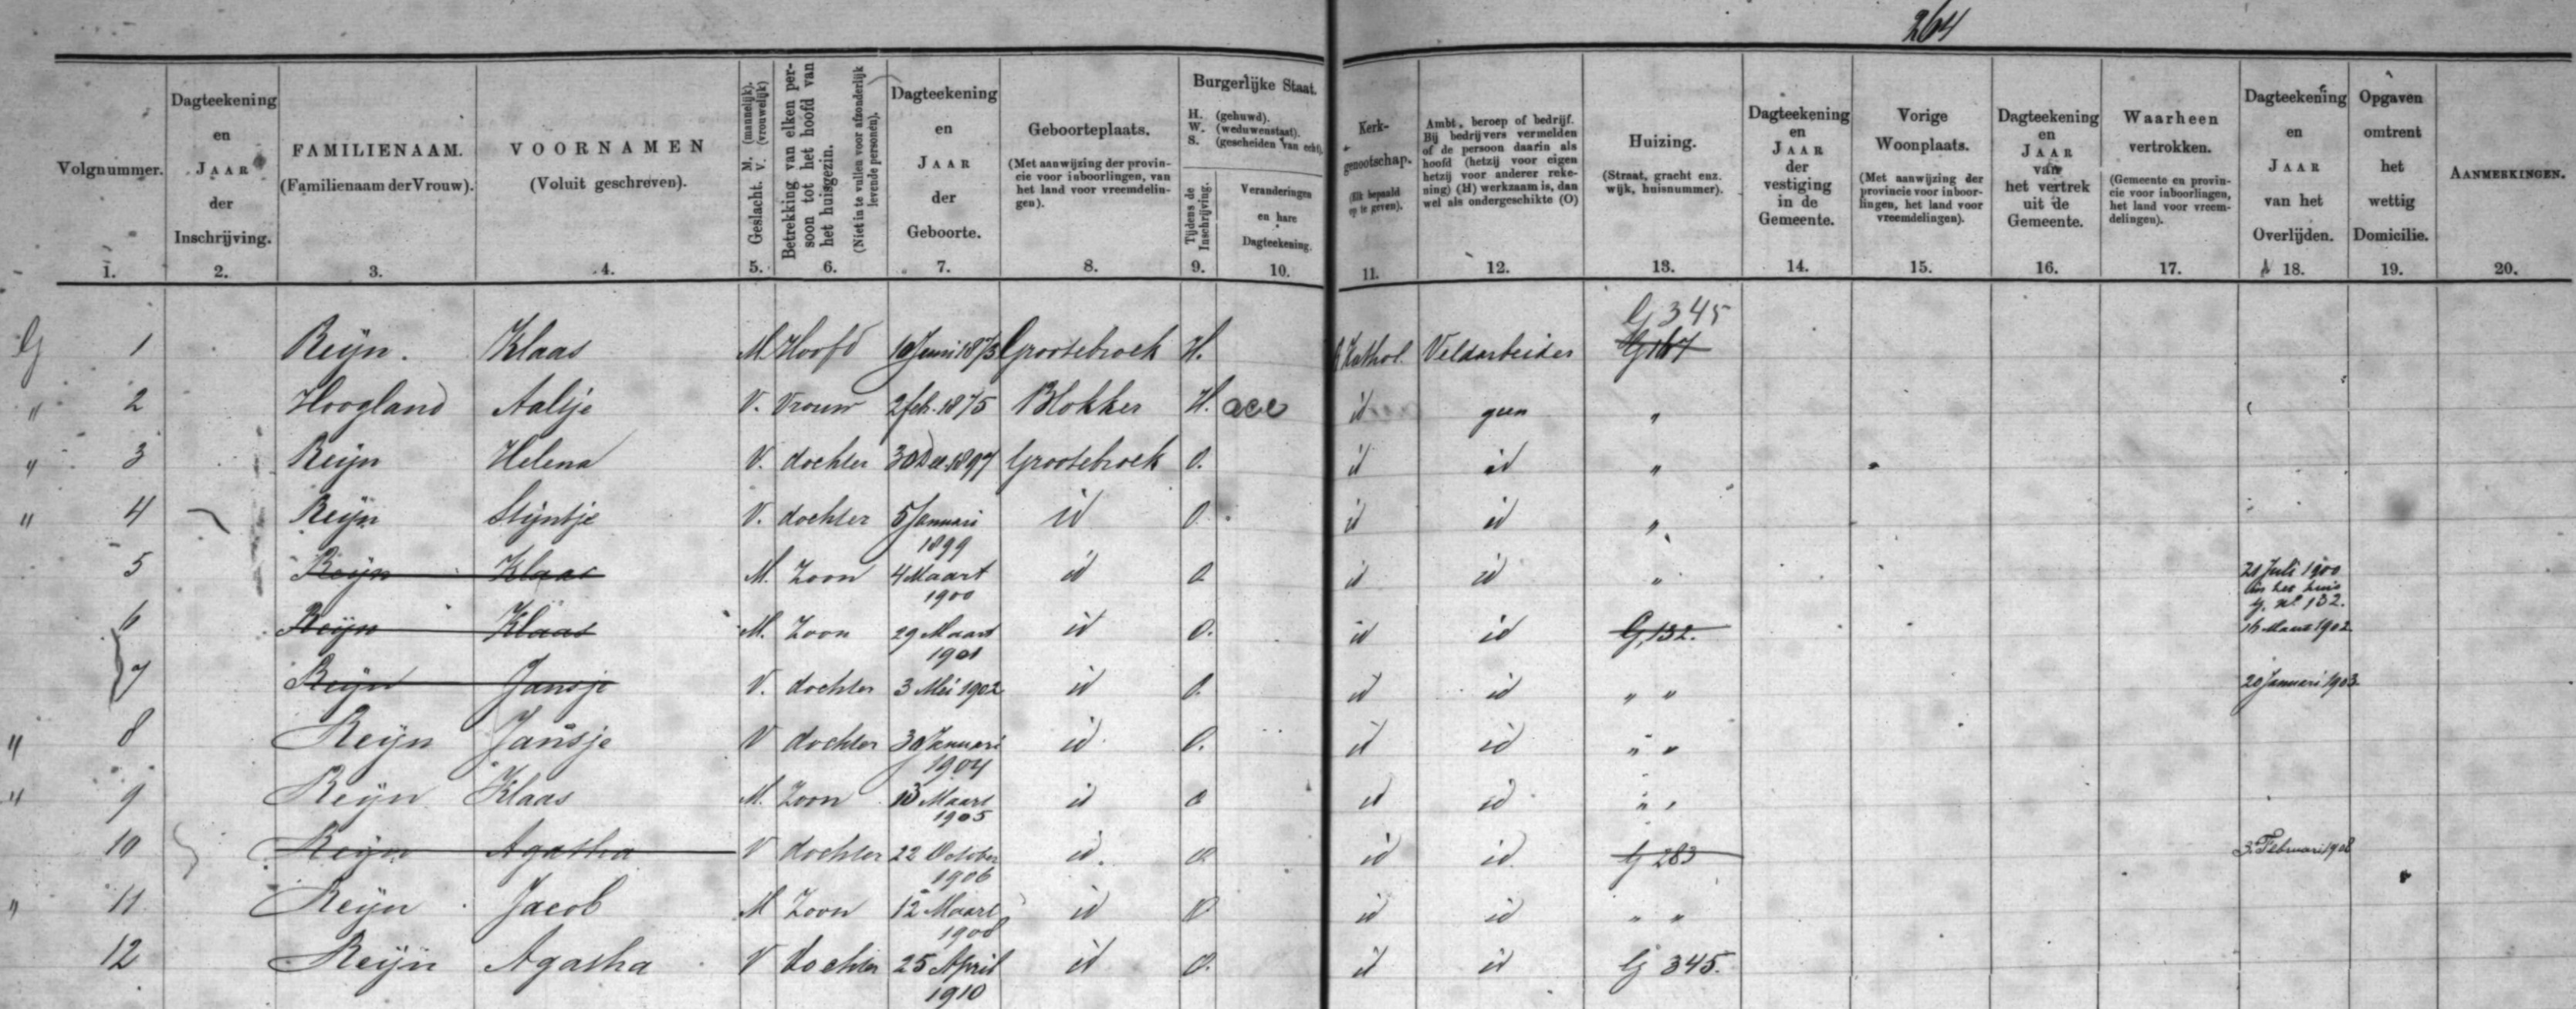 264
Volgnummer. 1.
Dagteekening en JAAR der Inschrijving. 2.
FAMILIENAAM. (Familienaam der Vrouw). 3.
VOORNAMEN (Voluit geschreven). 4.
Geslacht. M. (mannelijk). V. (vrouwelijk) 5.
Betrekking van elken persoon tot het hoofd van het huisgezin. (Niet in te vullen voor afzonderlijk levende personen). 6.
Dagteekening en JAAR der Geboorte. 7.
Geboorteplaats. (Met aanwijzing der provincie voor inboorlingen, van het land voor vreemdelingen). 8.
Burgerlijke Staat. H. (gehuwd). W. (weduwenstaat). S. (gescheiden van echt).
Tijdens de Inschrijving. 9.
Veranderingen en hare Dagteekening. 10.
Kerkgenootschap. (Elk bepaald op te geven). 11.
Ambt, beroep of bedrijf. Bij bedrijvers vermelden of de persoon daarin als hoofd (hetzij voor eigen hetzij voor anderer rekening) (H) werkzaam is, dan wel als ondergeschikte (O) 12.
Huizing. (Straat, gracht enz. wijk, huisnummer). 13.
Dagteekening en JAAR der vestiging in de Gemeente. 14.
Vorige Woonplaats. (Met aanwijzing der provincie voor inboorlingen, het land voor vreemdelingen). 15.
Dagteekening en JAAR van het vertrek uit de Gemeente. 16.
Waarheen vertrokken. (Gemeente en provincie voor inboorlingen, het land voor vreemdelingen). 17.
Dagteekening en JAAR van het Overlijden. 18.
Opgaven omtrent het wettig Domicilie. 19.
AANMERKINGEN. 20.
G 345
G 1 Reijn. Klaas M. Hoofd 10 Juni 1873 Grootebroek H. R Kathol. Veldarbeider G 167
" 2 Hoogland Aaltje V. Vrouw 2 feb. 1875 Blokker H. id geen "
" 3 Reijn Helena V. dochter 30 Dec. 1897 Grootebroek O. id id "
" 4 Reijn Stijntje V. dochter 5 Januari 1899 id O. id id "
5 Reijn Klaas M. Zoon 4 Maart 1900 id O id id " 21 Juli 1900 in het huis G. no 132.
6 Reijn Klaas M. Zoon 29 Maart 1901 id O. id id G, 132. 16 Maart 1902
7 Reijn Jansje V. dochter 3 Mei 1902 id O. id id " " 20 Januari 1903
" 8 Reijn Jansje V dochter 30 Januari 1904 id O. id id " "
" 9 Reijn Klaas M. Zoon 13 Maart 1905 id O id id " "
10 Reijn Agatha V dochter 22 October 1906 id. O id id. G 283 3 Februari 1908
" 11 Reijn Jacob M Zoon 12 Maart 1908 id O id id " "
12 Reijn Agatha V dochter 25 April 1910 id O. id id G 345.